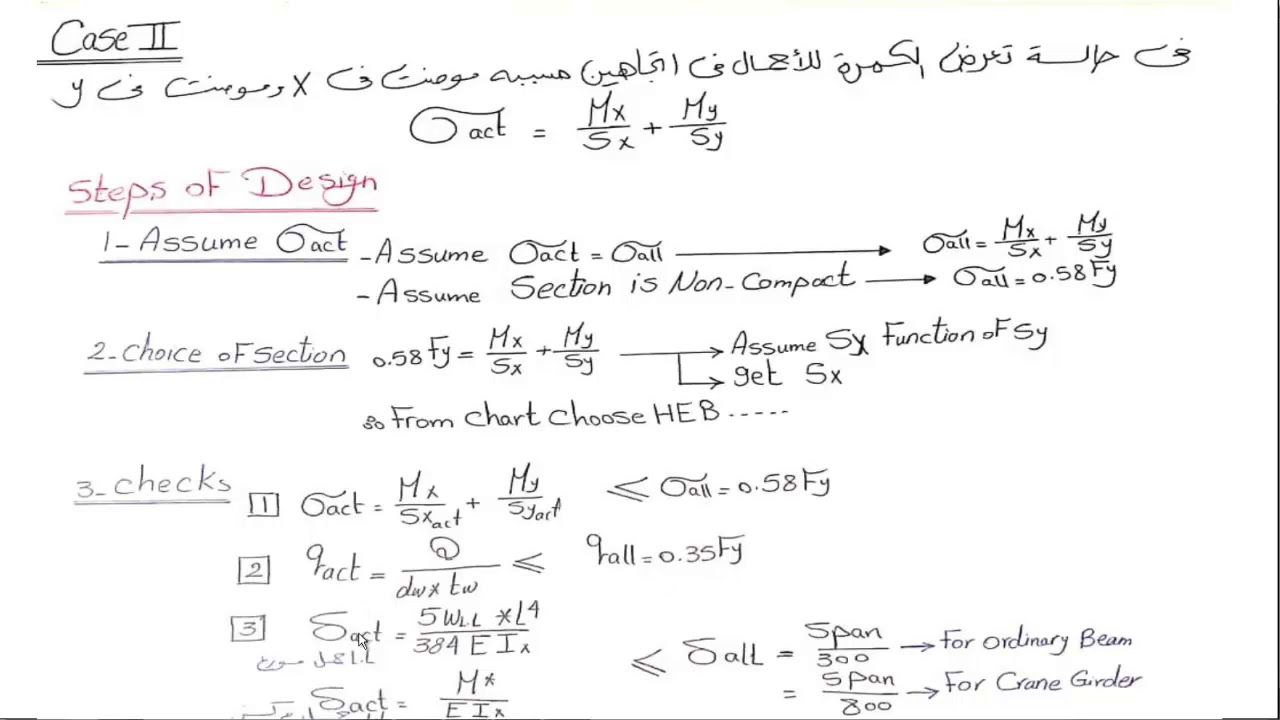 Case II
فى حالة تعرض الكمرة للأحمال فى اتجاهين مسببه مومنت فى X ومومنت فى y
σact = Mx/Sx + My/Sy
Steps of Design
1- Assume σact - Assume σact = σall → σall = Mx/Sx + My/Sy
- Assume Section is Non-Compact → σall = 0.58 Fy
2- Choice of Section 0.58 Fy = Mx/Sx + My/Sy → Assume Sx Function of Sy
→ get Sx
∴ From Chart Choose HEB .....
3- Checks 1 σact = Mx/Sxact + My/Syact ≤ σall = 0.58 Fy
2 qact = Q/dw x tw ≤ qall = 0.35 Fy
3 δact = 5 WLL * L4/384 E Ix
L.L
≤ δall = Span/300 → For Ordinary Beam
= Span/800 → For Crane Girder
δact = M*/E Ix